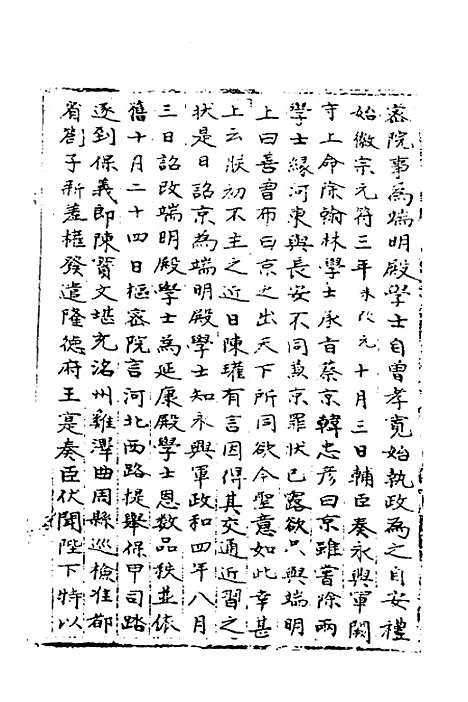 密院事為端明殿學士自曾孝寬始執政為之自安禮
始徽宗元符三年未改元十月三日輔臣奏永興軍闕
守上命除翰林學士承旨蔡京韓忠彦曰京雖嘗除兩
學士緣河東與長安不同兼京罪狀已露欲只與端明
上曰善曾布曰京之出天下所同欲今聖意如此幸甚
上云朕初不主之近日陳瓘有言因得其交通近習之
狀是日詔京為端明殿學士知永興軍政和四年八月
三日詔改端明殿學士為延康殿學士恩數品秩並依
舊十月二十四日樞密院言河北西路提舉保甲司踏
逐到保義郎陳寶文堪充洺州雞澤曲周縣巡檢徃都
省劄子新差權發遣隆德府王寔奏臣伏聞陛下特以